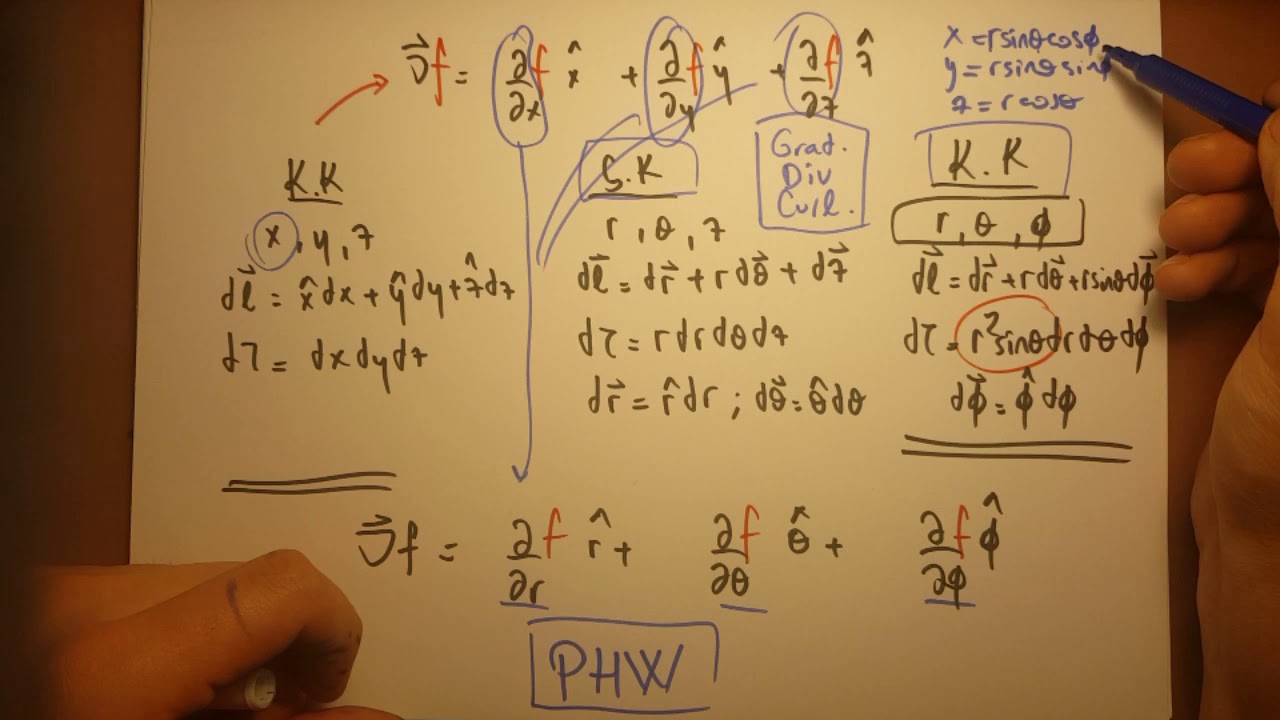 ∇⃗f = ∂f/∂x x̂ + ∂f/∂y ŷ + ∂f/∂z ẑ
x = rsinθcosϕ
y = rsinθsinϕ
z = rcosθ
K.K
x, y, z
dl⃗ = x̂dx + ŷdy + ẑdz
dτ = dxdydz
S.K
r, θ, z
dl⃗ = dr⃗ + rdθ⃗ + dz⃗
dτ = rdrdθdz
dr⃗ = r̂dr ; dθ⃗ = θ̂dθ
Grad.
Div
Curl.
K.K
r, θ, ϕ
dl⃗ = dr⃗ + rdθ⃗ + rsinθdϕ⃗
dτ = r²sinθdrdθdϕ
dϕ⃗ = ϕ̂dϕ
∇⃗f = ∂f/∂r r̂ + ∂f/∂θ θ̂ + ∂f/∂ϕ ϕ̂
PHW